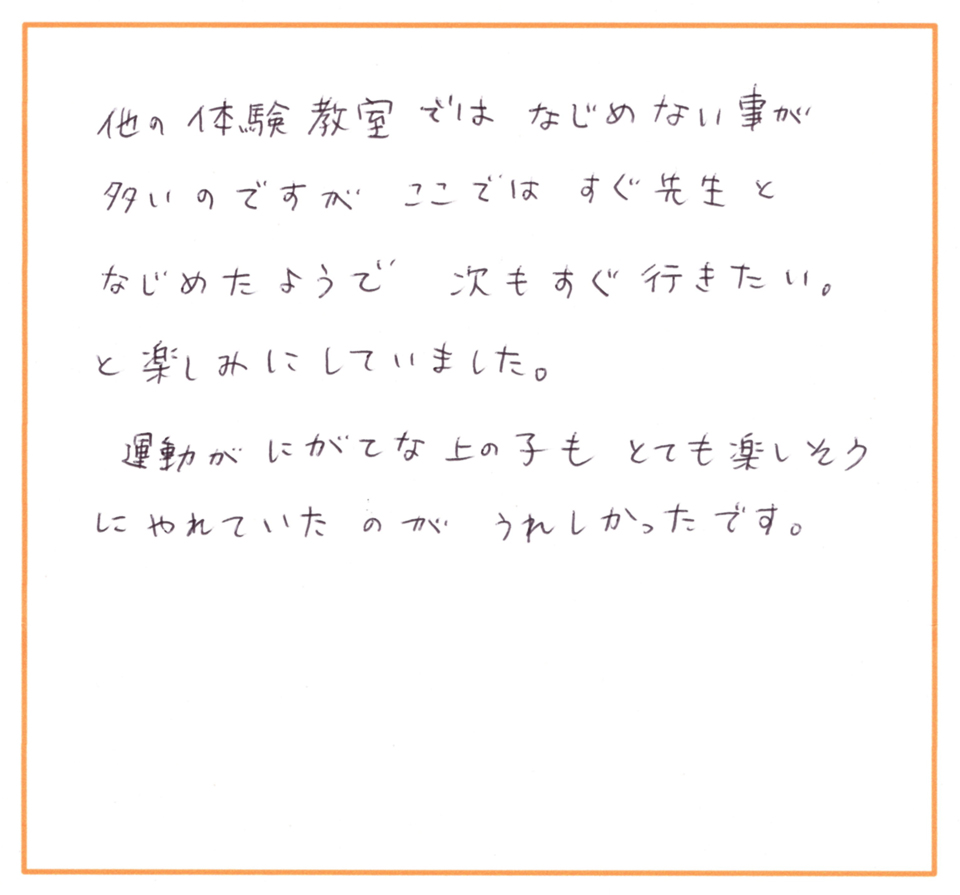 他の体験教室では なじめない事が
多いのですが ここでは すぐ先生と
なじめたようで 次もすぐ行きたい。
と楽しみにしていました。
運動がにがてな上の子も とても楽しそう
にやれていたのが うれしかったです。